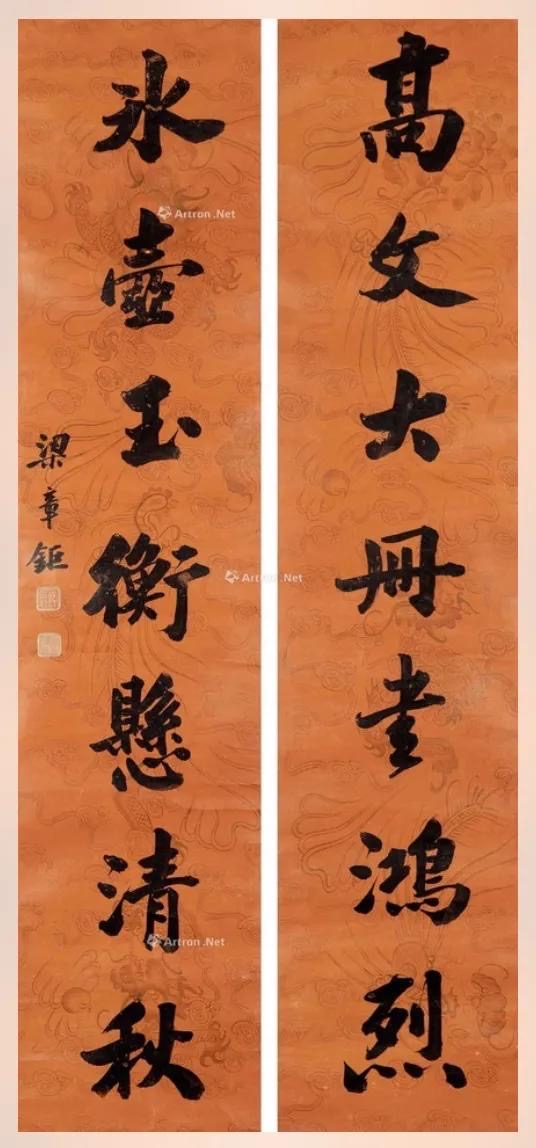 高文大冊書鴻烈
冰壺玉衡懸清秋
梁章鉅
Artron.Net
Artron.Net
Artron.Net